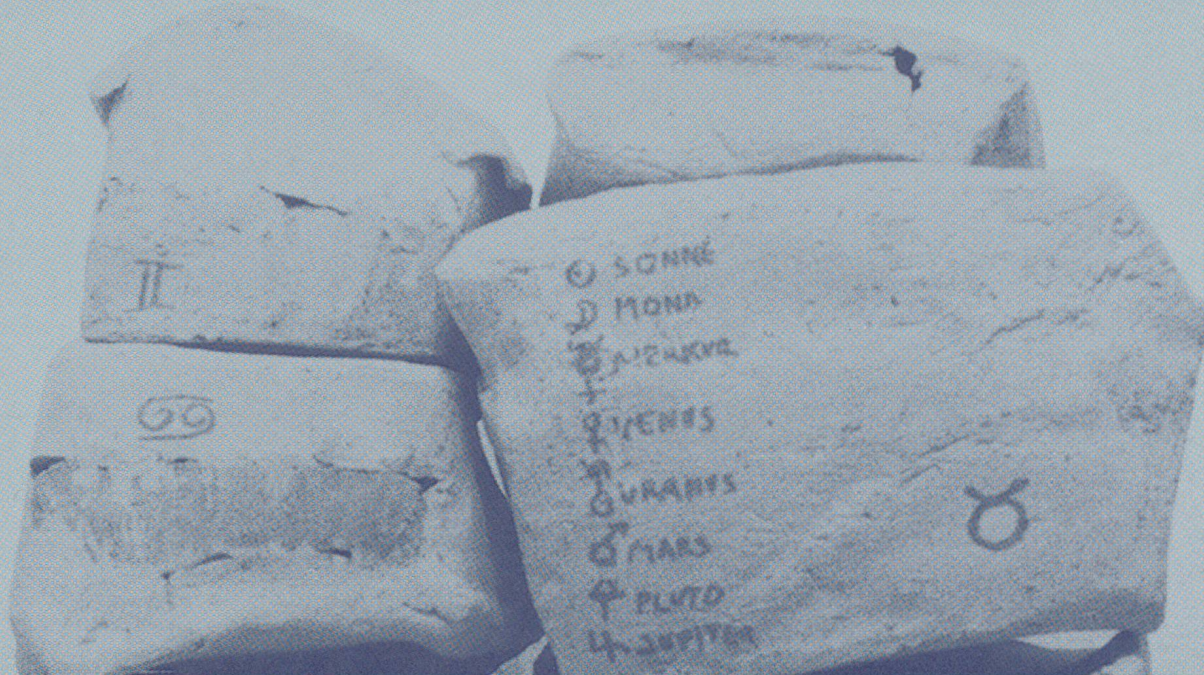 ♊
♋
☉ SONNE
☽ MOND
☿ MERKUR
♀ VENUS
♅ URANUS
♂ MARS
PLUTO
♃ JUPITER
♉